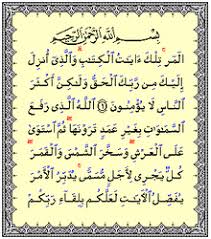 بِسْمِ اللَّهِ الرَّحْمَٰنِ الرَّحِيمِ
الٓمٓر تِلْكَ ءَايَٰتُ ٱلْكِتَٰبِ وَٱلَّذِىٓ أُنزِلَ
إِلَيْكَ مِن رَّبِّكَ ٱلْحَقُّ وَلَٰكِنَّ أَكْثَرَ
ٱلنَّاسِ لَا يُؤْمِنُونَ ١ ٱللَّهُ ٱلَّذِى رَفَعَ
ٱلسَّمَٰوَٰتِ بِغَيْرِ عَمَدٍ تَرَوْنَهَا ثُمَّ ٱسْتَوَىٰ
عَلَى ٱلْعَرْشِ وَسَخَّرَ ٱلشَّمْسَ وَٱلْقَمَرَ
كُلٌّ يَجْرِى لِأَجَلٍ مُّسَمًّى يُدَبِّرُ ٱلْأَمْرَ
يُفَصِّلُ ٱلْءَايَٰتِ لَعَلَّكُم بِلِقَآءِ رَبِّكُمْ